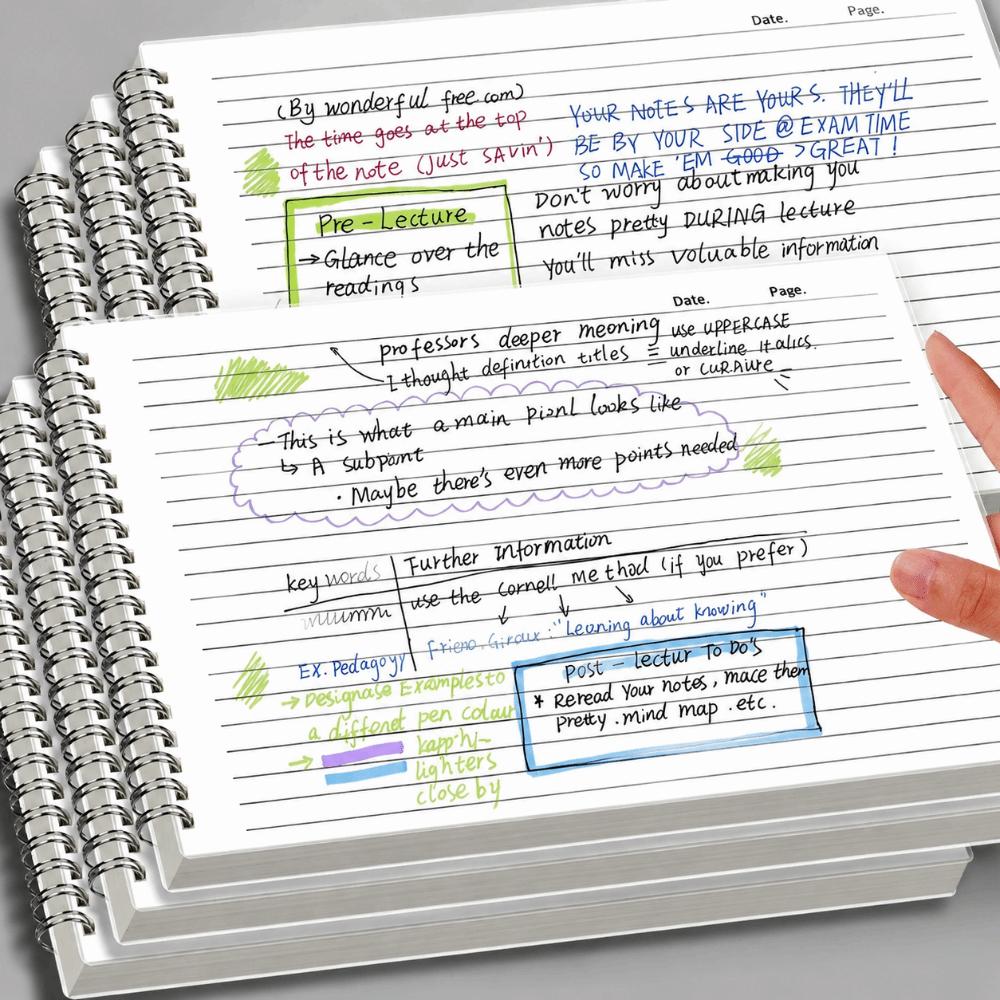 Date. Page.
(By wonderful free.com)
The time goes at the top
of the note (Just SAvin')
YOUR NOTES ARE YOURS. THEY'LL
BE BY YOUR SIDE @ EXAM TIME
SO MAKE 'EM GOOD >GREAT!
Pre-Lecture
→Glance over the
readings
Don't worry about making you
notes pretty DURING lecture
You'll miss valuable information
Date. Page.
professors deeper meoning
I thought definition titles =
use UPPERCASE
underline Italics.
or
-This is what a main look like
↳ A Subpoint
· Maybe there's even more points needed
key words
Further Information
use the Cornell Method (if you prefer)
Ex. Pedagogy
"Leoning about knowing"
→ Designase Examples to
a differet pen colour
→
lighters
close by
Post - lectur To Do's
* Reread Your notes, mace them
Pretty .mind map .etc.